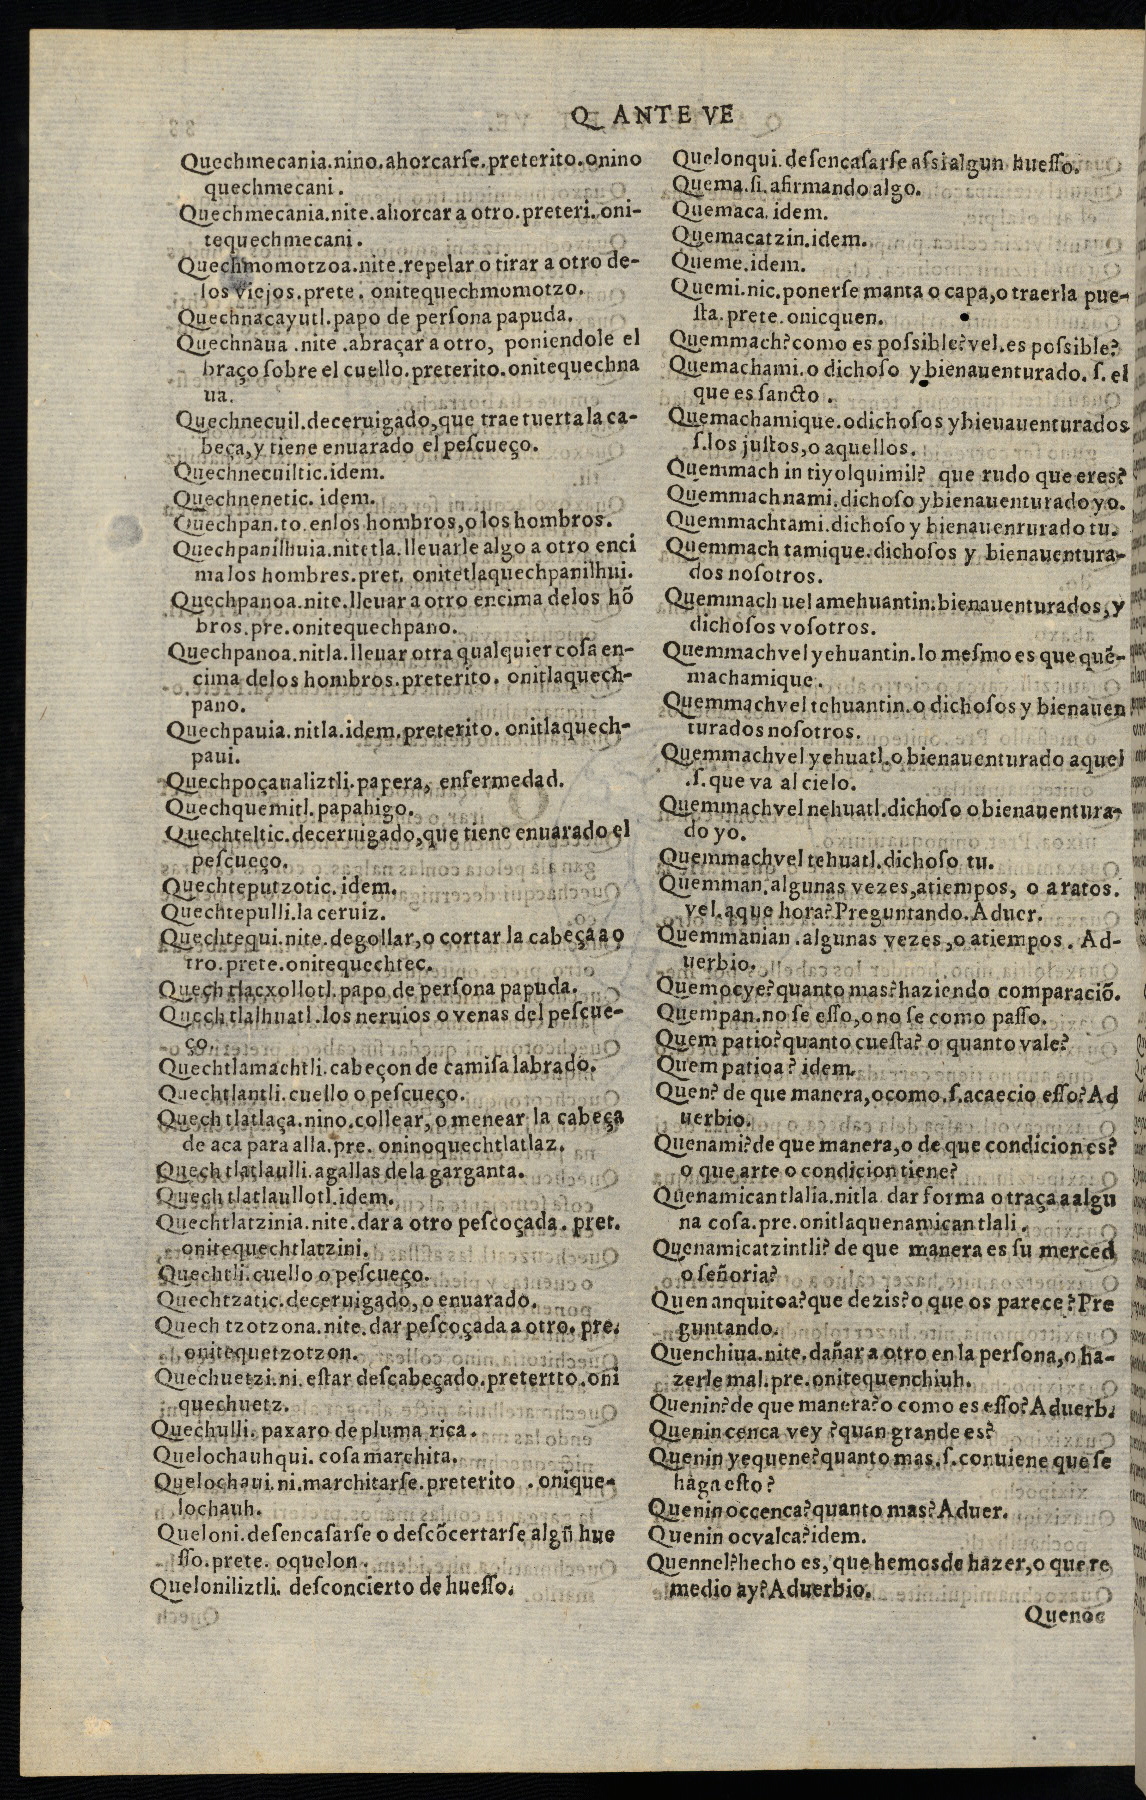 Q ANTE VE
Quechmecania.nino.ahorcarſe.preterito.onino
quechmecani.
Quechmecania.nite.ahorcar a otro.preteri.oni-
tequechmecani.
Quechmomotzoa.nite.repelar o tirar a otro de-
los viejos.prete. onitequechmomotzo.
Quechnacayutl.papo de perſona papuda.
Quechnaua.nite.abraçar a otro, poniendole el
braço ſobre el cuello.preterito.onitequechna
ua.
Quechnecuil.deceruigado,que trae tuerta la ca-
beça,y tiene enuarado el peſcueço.
Quechnecuiltic.idem.
Quechnenetic. idem.
Quechpan.to.enlos hombros,o los hombros.
Quechpanilhuia.nitetla.lleuarle algo a otro enci
ma los hombres.pret. onitetlaquechpanilhui.
Quechpanoa.nite.lleuar a otro encima delos hõ
bros.pre.onitequechpano.
Quechpanoa.nitla.lleuar otra qualquier coſa en-
cima delos hombros.preterito. onitlaquech-
pano.
Quechpauia.nitla.idem.preterito. onitlaquech-
paui.
Quechpoçaualiztli.papera, enfermedad.
Quechquemitl.papahigo.
Quechteltic.deceruigado,que tiene enuarado el
peſcueço.
Quechteputzotic.idem.
Quechtepulli.la ceruiz.
Quechtequi.nite.degollar,o cortar la cabeça a o
tro.prete.onitequechtec.
Quech tlacxollotl.papo de perſona papuda.
Quech tlalhuatl.los neruios o venas del peſcue-
ço.
Quechtlamachtli.cabeçon de camiſa labrado.
Quechtlantli.cuello o peſcueço.
Quech tlatlaça.nino.collear, o menear la cabeça
de aca para alla.pre. oninoquechtlatlaz.
Quech tlatlaulli.agallas dela garganta.
Quech tlatlaullotl.idem.
Quechtlatzinia.nite.dar a otro peſcoçada. pret.
onitequechtlatzini.
Quechtli.cuello o peſcueço.
Quechtzatic.deceruigado, o enuarado.
Quech tzotzona.nite.dar peſcoçada a otro. pre.
onitequetzotzon.
Quechuetzi.ni.eſtar deſcabeçado.pretertto.oni
quechuetz.
Quechulli. paxaro de pluma rica.
Quelochauhqui. coſa marchita.
Quelochaui.ni.marchitarſe.preterito . onique-
lochauh.
Queloni.deſencaſarſe o deſcõcertarſe algũ hue
ſſo.prete. oquelon.
Queloniliztli. deſconcierto de hueſſo.
Quelonqui.deſencaſarſe aſsi algun hueſſo.
Quema.ſi.afirmando algo.
Quemaca.idem.
Quemacatzin.idem.
Queme.idem.
Quemi.nic.ponerſe manta o capa,o traerla pue-
ſta.prete.onicquen.
Quemmach?como es poſsible?vel.es poſsible?
Quemachami.o dichoſo y bienauenturado. ſ. el
que es ſancto .
Quemachamique.odichoſos y bieuauenturados
ſ.los juſtos,o aquellos.
Quemmach in tiyolquimil? que rudo que eres?
Quemmachnami.dichoſo y bienauenturado yo.
Quemmachtami.dichoſo y bienauenrurado tu.
Quemmach tamique.dichoſos y bienauentura-
dos noſotros.
Quemmach uel amehuantin.bienauenturados, y
dichoſos voſotros.
Quemmachvel yehuantin.lo meſmo es que quẽ-
machamique.
Quemmachvel tehuantin.o dichoſos y bienauen
turados noſotros.
Quemmachvel yehuatl.o bienauenturado aquel
.ſ.que va al cielo.
Quemmachvel nehuatl.dichoſo o bienauentura-
do yo.
Quemmachvel tehuatl.dichoſo tu.
Quemman.algunas vezes,atiempos, o a ratos.
vel.aque hora?Preguntando.Aduer.
Quemmanian.algunas vezes,o atiempos. Ad-
uerbio.
Quemocye?quanto mas?haziendo comparaciõ.
Quempan.no ſe eſſo,o no ſe como paſſo.
Quem patio?quanto cueſta? o quanto vale?
Quem patioa? idem.
Quen? de que manera,ocomo.ſ.acaecio eſſo?Ad
uerbio.
Quenami?de que manera,o de que condicion es?
o que arte o condicion tiene?
Quenamicantlalia.nitla. dar forma o traça a algu
na coſa.pre.onitlaquenamicantlali.
Quenamicatzintli? de que manera es ſu merced
o ſeñoria?
Quen anquitoa?que dezis?o que os parece?Pre
guntando.
Quenchiua.nite.dañar a otro en la perſona,o ha-
zerle mal.pre.onitequenchiuh.
Quenin?de que manera?o como es eſſo?Aduerb.
Quenin cenca vey ?quan grande es?
Quenin yequene?quanto mas.ſ.conuiene que ſe
haga eſto?
Quenin occenca?quanto mas?Aduer.
Quenin ocvalca?idem.
Quennel?hecho es, que hemos de hazer,o que re
medio ay?Aduerbio.
Quenoc